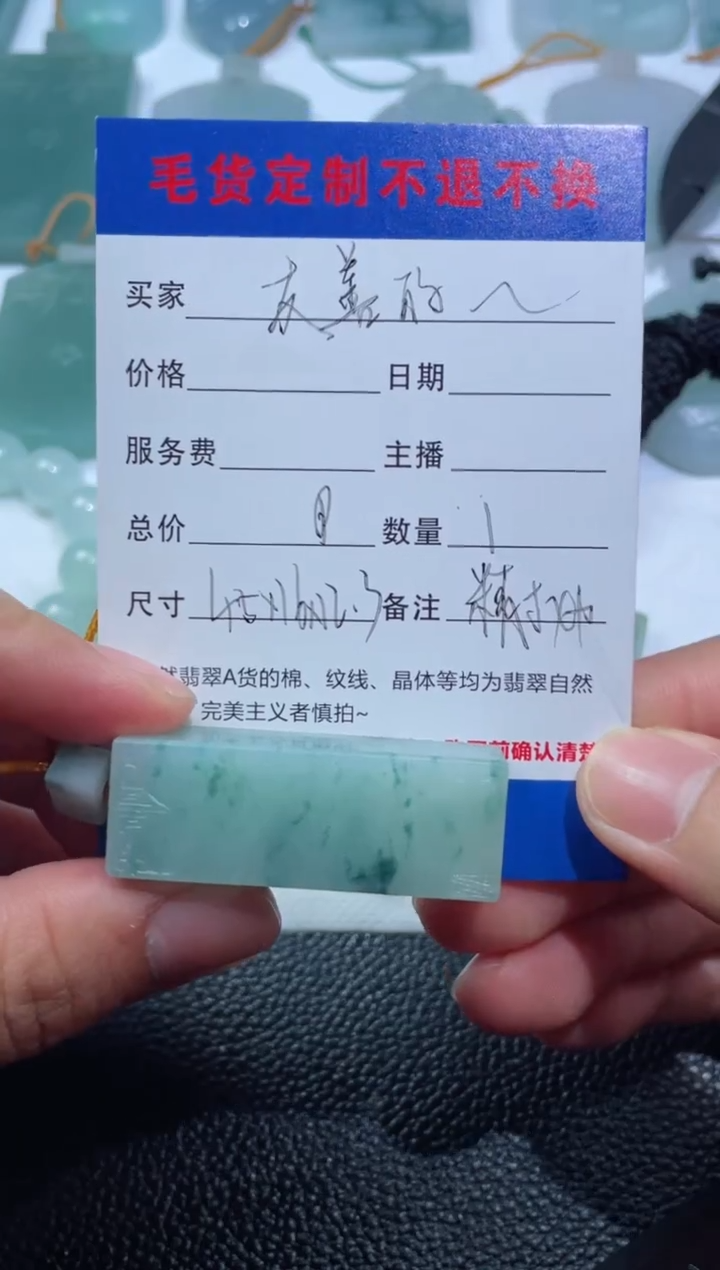 毛货定制不退不换
买家 友善的人
价格 日期
服务费 主播
总价 数量 1
尺寸 备注 精抛
然翡翠A货的棉、纹线、晶体等均为翡翠自然
完美主义者慎拍~
前确认清楚